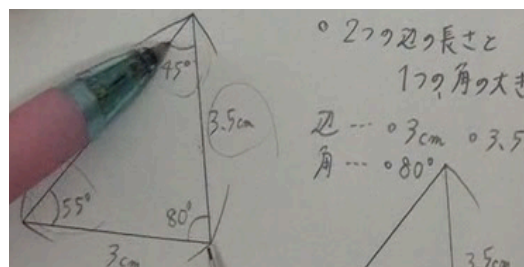 45°
3.5cm
55°
80°
3cm
○2つの辺の長さと
1つの角の大き
辺…○3cm ○3.5
角…○80°
3.5cm